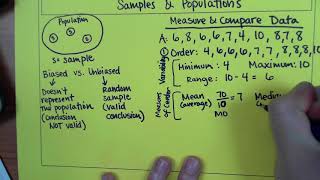 Samples & Populations
Population
S
S
S
S = sample
Biased vs. Unbiased
Doesn't
represent
the population
(conclusion
NOT valid)
Random
sample
(valid
conclusion)
Measure & Compare Data
A: 6, 8, 6, 6, 7, 4, 10, 8, 7, 8
Order: 4, 6, 6, 6, 7, 7, 8, 8, 8, 10
Variability
Minimum: 4 Maximum: 10
Range: 10 - 4 = 6
Measures
of Center
Mean
(average)
70/10 = 7
MO